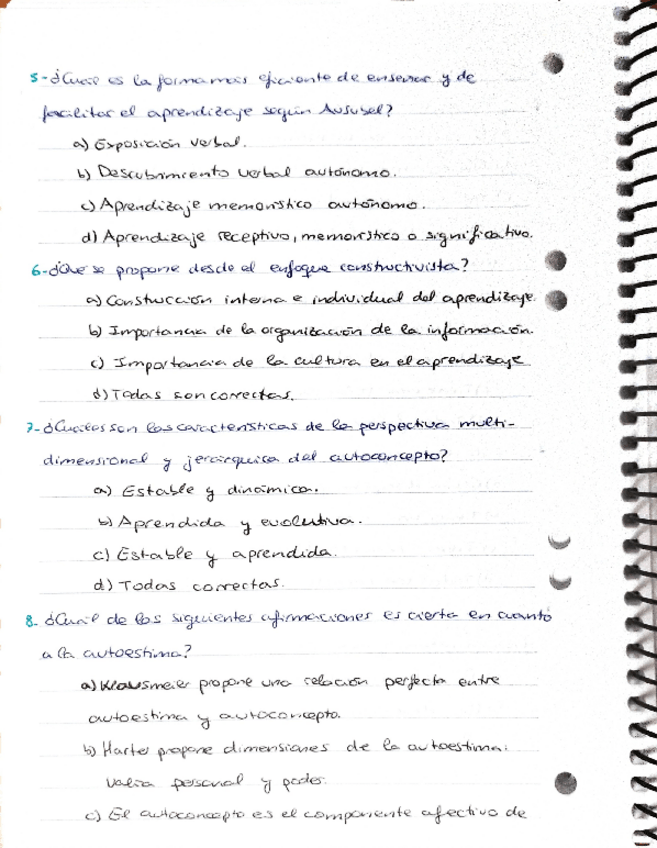 5-¿Cuál es la forma más eficiente de enseñar y de
facilitar el aprendizaje según Ausubel?
a) Exposición verbal.
b) Descubrimiento verbal autónomo.
c) Aprendizaje memorístico autónomo.
d) Aprendizaje receptivo, memorístico o significativo.
6-¿Qué se propone desde el enfoque constructivista?
a) Construcción interna e individual del aprendizaje.
b) Importancia de la organización de la información.
c) Importancia de la cultura en el aprendizaje
d) Todas son correctas.
7-¿Cuáles son las características de la perspectiva multi-
dimensional y jerárquica del autoconcepto?
a) Estable y dinámica.
b) Aprendida y evolutiva.
c) Estable y aprendida.
d) Todas correctas.
8. ¿Cuál de las siguientes afirmaciones es cierta en cuanto
a la autoestima?
a) Klausmeier propone una relación perfecta entre
autoestima y autoconcepto.
b) Harter propone dimensiones de la autoestima:
valía personal y poder.
c) El autoconcepto es el componente afectivo de